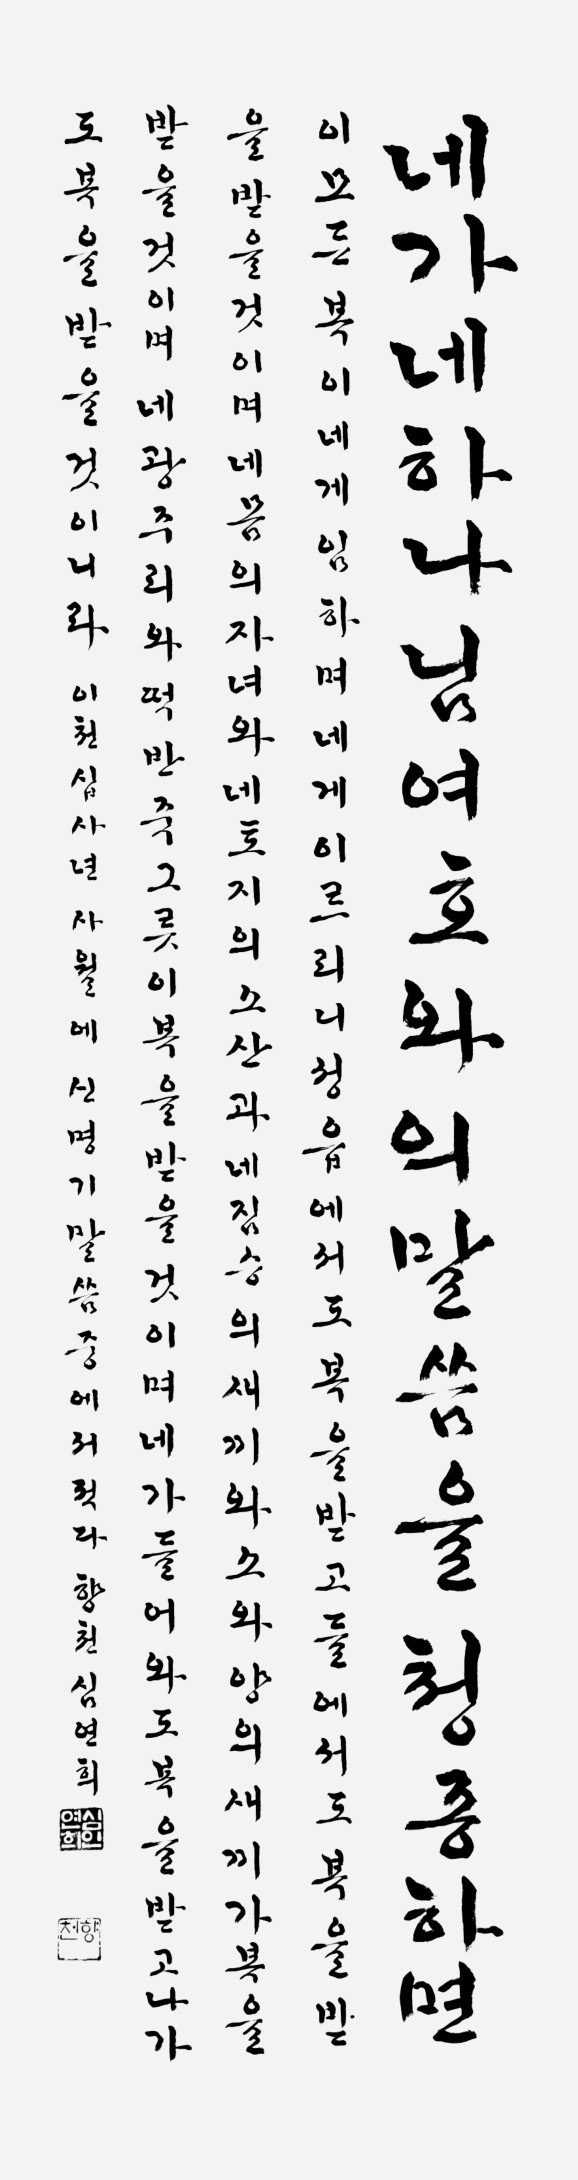 네가네하나님여호와의말씀을 청종하면
이모든복이네게임하며네게이르리니성읍에서도복을받고들에서도복을받
을받을것이며네몸의자녀와네토지의소산과네짐승의새끼와소와양의새끼가복을
받을것이며네광주리와떡반죽그릇이복을받을것이며네가들어와도복을받고나가
도복을받을것이니라 이천십사년 사월에 신명기말씀중에서적다 향천심연희
심연희인
향천